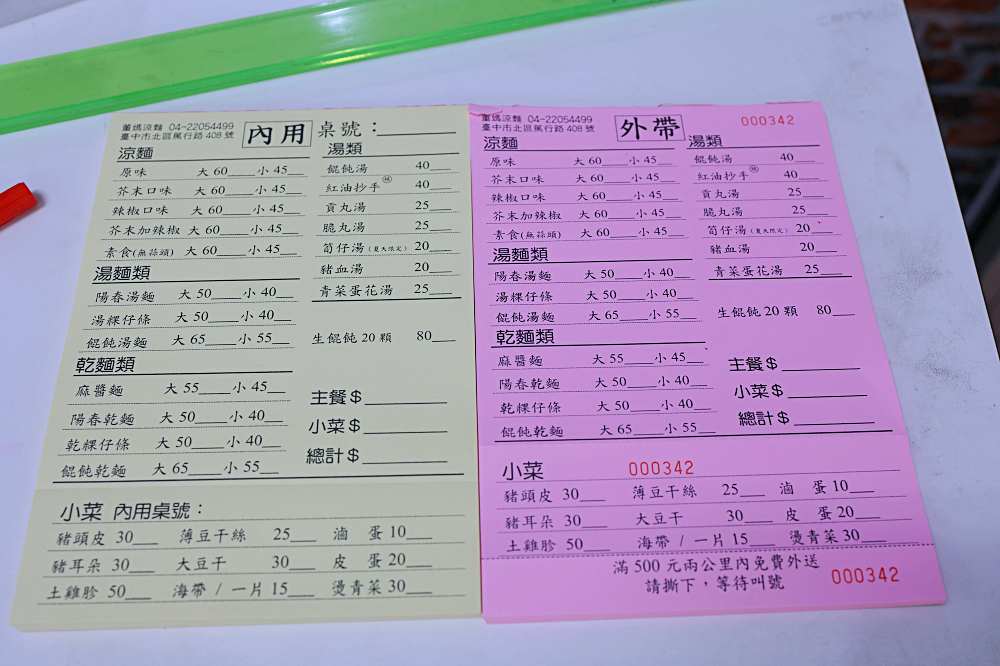 董媽涼麵 04-22054499
臺中市北區篤行路 408 號
內用
桌號：
涼麵
原味 大 60 小 45
芥末口味 大 60 小 45
辣椒口味 大 60 小 45
芥末加辣椒 大 60 小 45
素食(無蒜頭) 大 60 小 45
湯麵類
陽春湯麵 大 50 小 40
湯粿仔條 大 50 小 40
餛飩湯麵 大 65 小 55
乾麵類
麻醬麵 大 55 小 45
陽春乾麵 大 50 小 40
乾粿仔條 大 50 小 40
餛飩乾麵 大 65 小 55
湯類
餛飩湯 40
紅油抄手 辣 40
貢丸湯 25
脆丸湯 25
筍仔湯(夏天限定) 20
豬血湯 20
青菜蛋花湯 25
生餛飩 20 顆 80
主餐$
小菜$
總計$
小菜 內用桌號：
豬頭皮 30 薄豆干絲 25 滷 蛋 10
豬耳朵 30 大豆干 30 皮 蛋 20
土雞胗 50 海帶 / 一片 15 燙青菜 30
董媽涼麵 04-22054499
臺中市北區篤行路 408 號
外帶
000342
涼麵
原味 大 60 小 45
芥末口味 大 60 小 45
辣椒口味 大 60 小 45
芥末加辣椒 大 60 小 45
素食(無蒜頭) 大 60 小 45
湯麵類
陽春湯麵 大 50 小 40
湯粿仔條 大 50 小 40
餛飩湯麵 大 65 小 55
乾麵類
麻醬麵 大 55 小 45
陽春乾麵 大 50 小 40
乾粿仔條 大 50 小 40
餛飩乾麵 大 65 小 55
湯類
餛飩湯 40
紅油抄手 辣 40
貢丸湯 25
脆丸湯 25
筍仔湯(夏天限定) 20
豬血湯 20
青菜蛋花湯 25
生餛飩 20 顆 80
主餐$
小菜$
總計$
小菜 000342
豬頭皮 30 薄豆干絲 25 滷 蛋 10
豬耳朵 30 大豆干 30 皮 蛋 20
土雞胗 50 海帶 / 一片 15 燙青菜 30
滿 500 元兩公里內免費外送
請撕下，等待叫號
000342